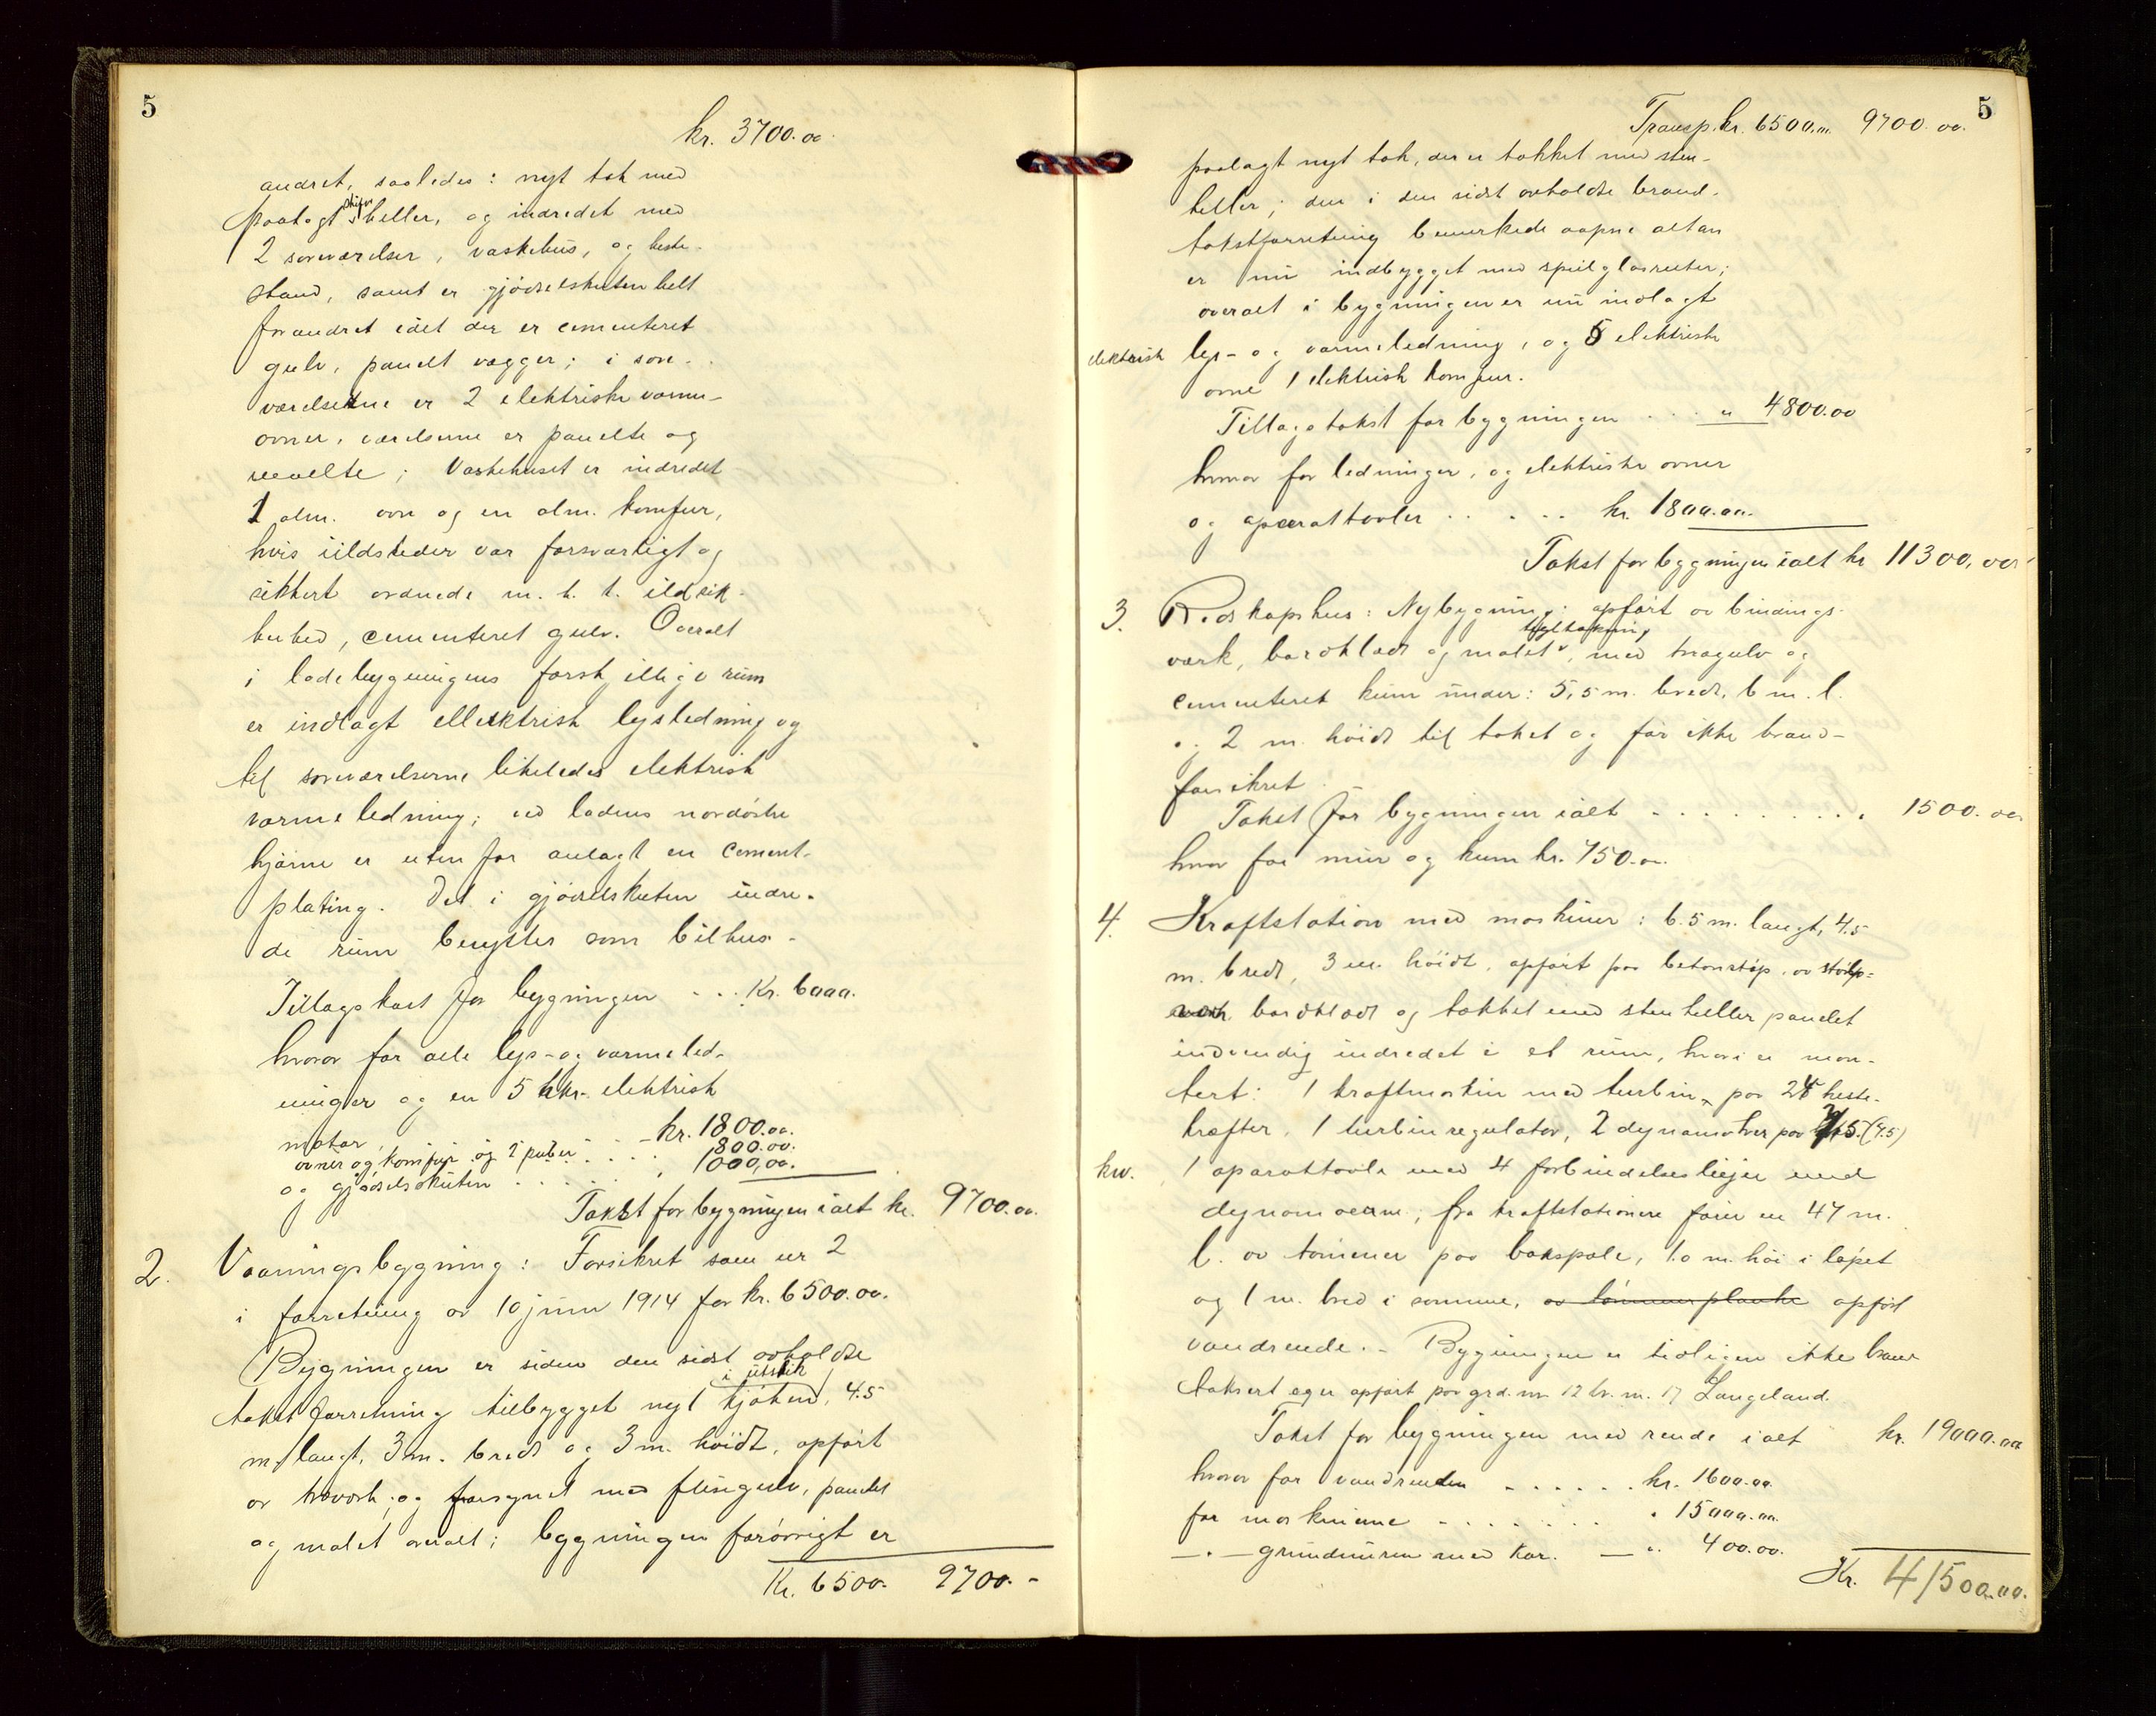 5
kr. 3700.00
andret, saaledes: nyt tak med
paalagt skifer heller, og indredet med
2 soveværelser, vaskehus, og heste-
stand, samt er gjødselskuten helt
forandret idet der er cementeret
gulv, panelt vægger; i sove-
værelserne er 2 elektriske varme-
ovner, værelserne er panelte og
malte; Vaskehuset er indredet
1 alm. ovn og en alm. komfur,
hvis ildsteder var forsvarligt og
sikkert ordnede m. h. t. ildsik-
kerhed, cementeret gulv. Overalt
i ladebygningens forskjellige rum
er indlagt ellektrisk lysledning og
til soveværelserne likeledes elektrisk
varmeledning; ved ladens nordøstre
hjørne er uten for anlagt en cement-
plating. Det i gjødselskuten indre-
de rum benyttes som bilhus.
Tillagskast for bygningen ... Kr. 6000.
hvorav for alle lys- og varmeled-
ninger og en 5 hkr. elektrisk
motor, - kr. 1800.00.
ovner og komfyr og 2 . . . . 800.00.
og gjødselskuten . . . . . 1000,00.
Takst for bygningen ialt kr. 9700.00.
2. Vaaningsbygning: Forsikret som nr 2
i forretning av 10 juni 1914 for kr. 6500.00.
Bygningen er siden den sidst avholdte
i utstik
takstforretning tilbygget nyt kjøken, 4.5
m. langt, 3 m. bredt og 3 m. høidt, opført
av træverk og forsynet med flisgulv, panelet
og malet overalt; bygningen forøvrigt er
Kr. 6500. 9700.-
5
Transp. kr. 6500.00. 9700.00.
paalagt nyt tak, der er takket med sten-
heller; den i den sidst avholdte brand-
takstforretning bemerkede aapne altan
er nu indbygget med speilglasruter;
overalt i bygningen er nu indlagt
elektrisk lys- og varmeledning, og 5 elektriske
ovne 1 elektrisk komfur.
Tillagstakst for bygningen . . . " 4800.00
hvorav for ledninger, og elektriske ovner
og aparattavler . . . . . kr. 1800.00.
Takst for bygningen ialt kr 11300,00
3. Redskapshus: Nybygning: opført av bindings-
tegltækning
værk, bordklædt og malet, med trægulv og
cementeret kum under: 5,5 m. bredt, 6 m. l.
og 2 m. høidt til taket og før ikke brand-
forsikret.
Takst for bygningen ialt . . . . . . . . . 1500.00
hvorav for mur og kum kr. 750.00.
4. Kraftstation med maskiner: 6.5 m. langt, 4.5
m. bredt, 3 m. høidt, opført paa betonstøp. av stolp-
verk bordklædt og takket med stenheller panelet
indvendig indredet i et rum, hvori er mon-
tert: 1 kraftmaskin med turbin, paa 24 heste-
kræfter, 1 turbinregulator, 2 dynamoer paa 7,5 (4.5)
kw. 1 aparattavle med 4 forbindelseslinjer med
dynamoerne; fra kraftstationen fører en 47 m.
l. av tømmer paa bakspæle, 1.0 m. høi i løpet
og 1 m. bred i somme, av tømmerplanke opført
vandrende. - Bygningen er tidligere ikke brand-
taksert og er opført paa grd. nr 12 br. nr. 17 Langeland.
Takst for bygningen med rende ialt kr. 19000.00
hvorav for vandrenden . . . . . . kr. 1600.00.
for maskinene . . . . . . . " 15000.00.
— " — grundmuren med kar. — " 400.00.
Kr. 41500.00.